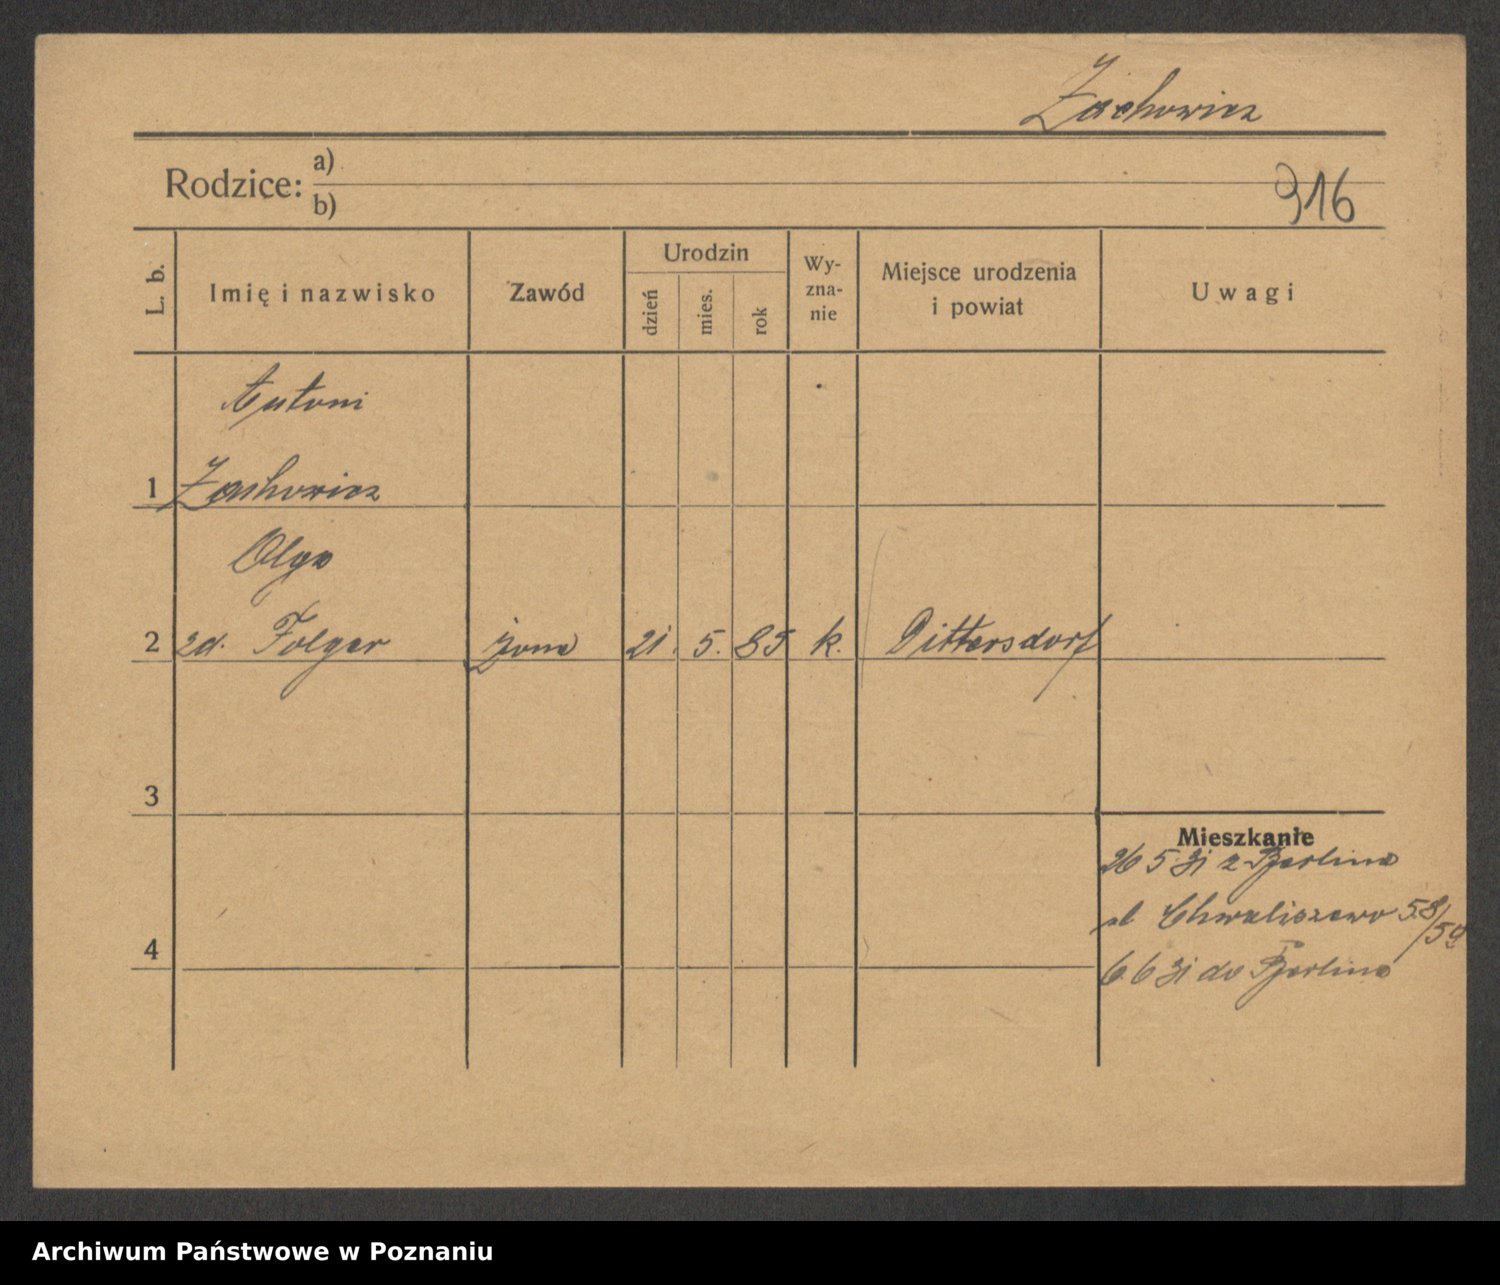 Zachowicz
Rodzice: a)
b)
916
L. b.
Imię i nazwisko
Zawód
Urodzin
dzień
mies.
rok
Wy-
zna-
nie
Miejsce urodzenia
i powiat
Uwagi
Antoni
1 Zachowicz
Olga
2 zd. Folger żona 21. 5. 85 k. Dittersdorf
3
Mieszkanie
26 5 31 z Berlina
ul Chwaliszewo 58/59
4
6.6 31 do Berlina
Archiwum Państwowe w Poznaniu